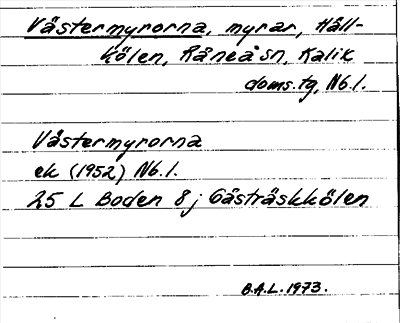 Västermyrorna, myrar, Håll-
kölen, Råneå sn, Kalix
doms.tg, Nb.l.
Västermyrorna
ek (1952) Nb.l.
25 L Boden 8 j Gästräskkölen
B.A.L. 1973.